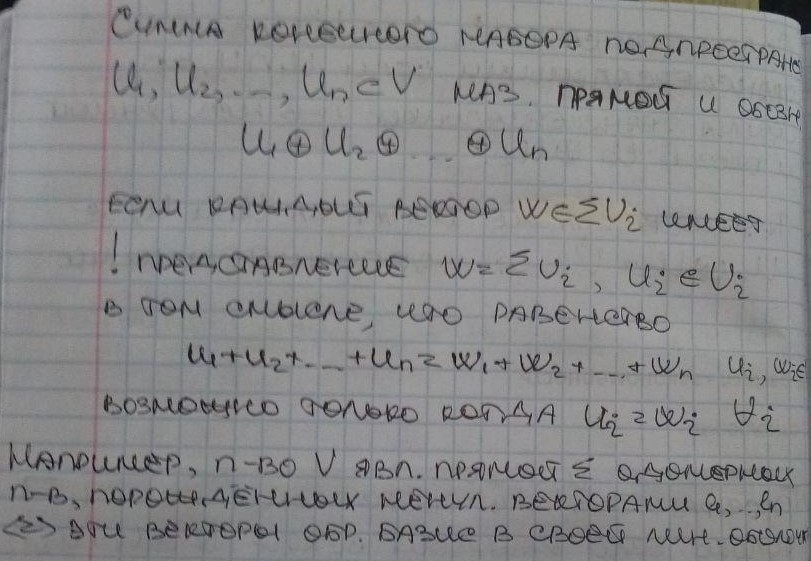 Сумма конечного набора подпростран
U₁, U₂, ..., Uₙ ⊂ V наз. прямой и обозн
U₁ ⊕ U₂ ⊕ ... ⊕ Uₙ
Если каждый вектор w ∈ ΣUᵢ имеет
! представление w = Σuᵢ, uᵢ ∈ Uᵢ
в том смысле, что равенство
u₁+u₂+...+uₙ = w₁+w₂+...+wₙ uᵢ, wᵢ ∈
возможно только когда uᵢ = wᵢ ∀i
Например, п-во V явл. прямой Σ одномерных
п-в, порождённых ненул. векторами e₁,...,eₙ
<=> эти векторы обр. базис в своей лин. оболочк